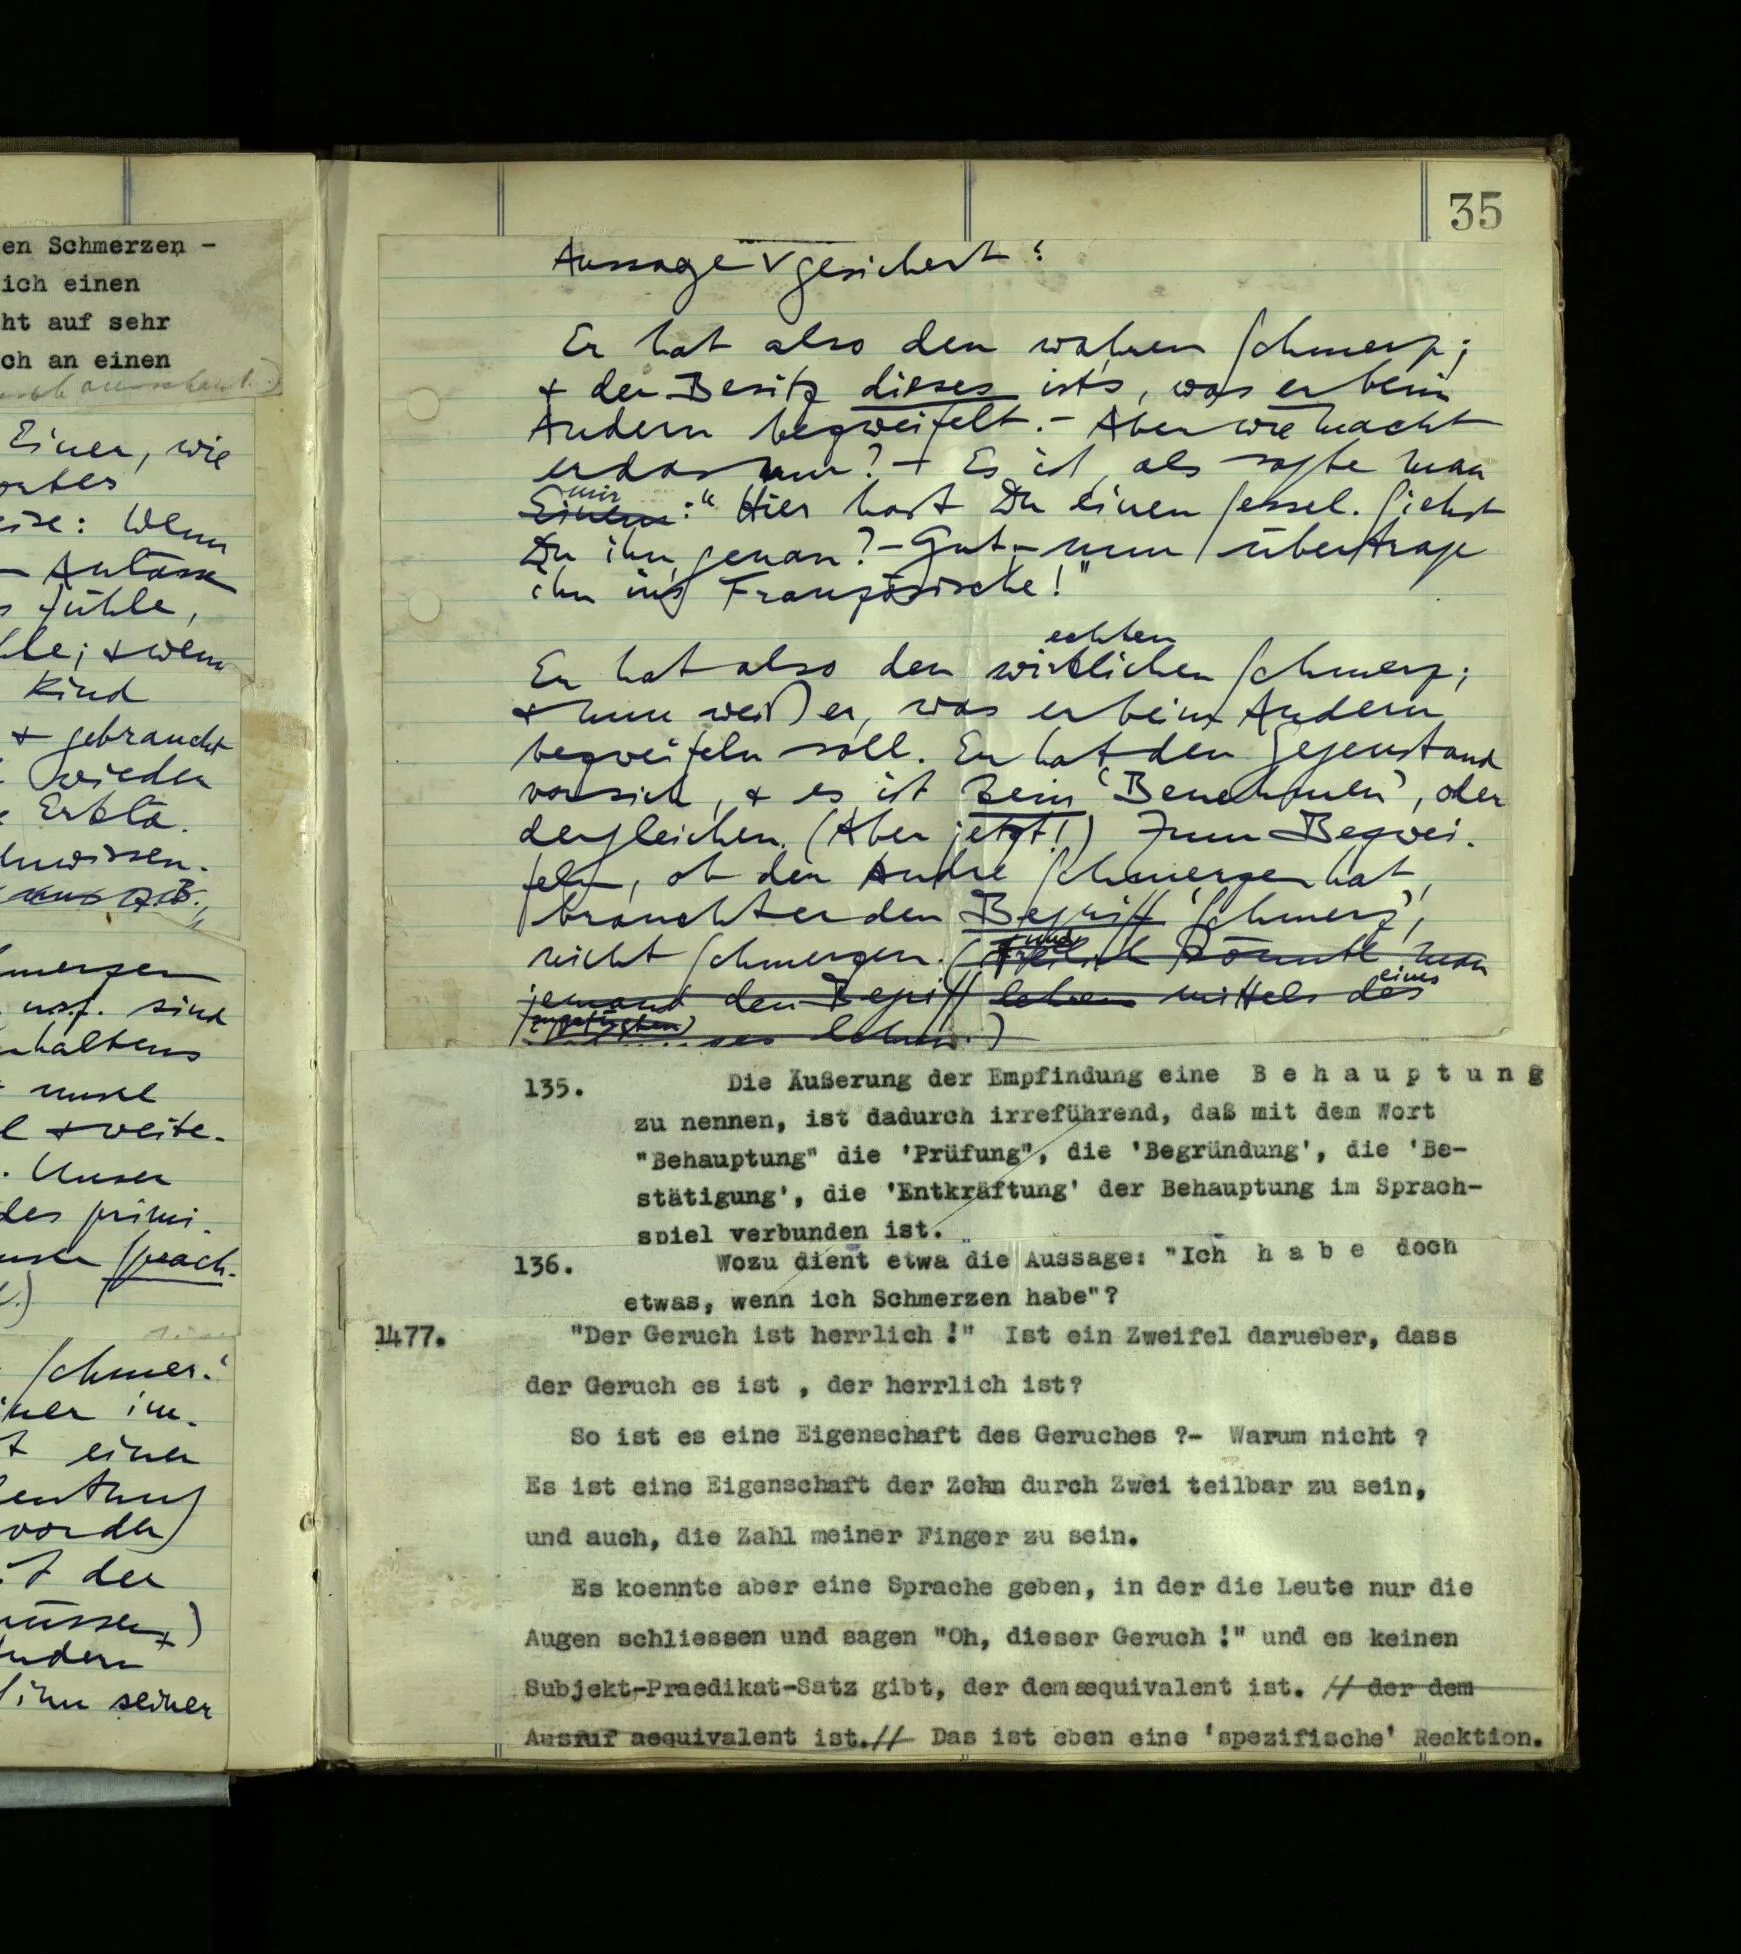 en Schmerzen -
ich einen
ht auf sehr
ch an einen
Einer, wie
eise: Wenn
- Anlass
s fühle,
hle; + wenn
Kind
+ gebraucht
wieder
Erklä-
unwissen.
merzen
usf. sind
rhaltens
muss
l + weite-
. Unser
des primi-
Sprach-
Schmer-
iner im-
t einer
vorder
t der
müssen)
Andern
Sinn seiner
35
Aussage gesichert?
Er hat also den wahren Schmerz;
+ der Besitz dieses ist's, was er beim
Andern bezweifelt. - Aber wie macht
er das nur? - Es ist, als sagte man
mir
Einem: "Hier hast Du einen Sessel. Siehst
Du ihn genau? - Gut - nun übertrage
ihn ins Französische!"
echten
Er hat also den wirklichen Schmerz;
+ nun weiß er, was er beim Andern
bezweifeln soll. Er hat den Gegenstand
vor sich, + es ist kein 'Benehmen', oder
dergleichen. (Aber jetzt!) Zum Bezwei-
feln, ob der Andre Schmerzen hat,
braucht er den Begriff 'Schmerz',
nicht Schmerzen. (Freilich könnte man
jemand den Begriff lehren mittels des
eines
lehren.)
135. Die Äußerung der Empfindung eine B e h a u p t u n g
zu nennen, ist dadurch irreführend, daß mit dem Wort
"Behauptung" die 'Prüfung", die 'Begründung', die 'Be-
stätigung', die 'Entkräftung' der Behauptung im Sprach-
spiel verbunden ist.
136. Wozu dient etwa die Aussage: "Ich h a b e doch
etwas, wenn ich Schmerzen habe"?
1477. "Der Geruch ist herrlich !" Ist ein Zweifel darueber, dass
der Geruch es ist , der herrlich ist?
So ist es eine Eigenschaft des Geruches ?- Warum nicht ?
Es ist eine Eigenschaft der Zehn durch Zwei teilbar zu sein,
und auch, die Zahl meiner Finger zu sein.
Es koennte aber eine Sprache geben, in der die Leute nur die
Augen schliessen und sagen "Oh, dieser Geruch !" und es keinen
Subjekt-Praedikat-Satz gibt, der dem aequivalent ist. // der dem
Ausruf aequivalent ist.// Das ist eben eine 'spezifische' Reaktion.